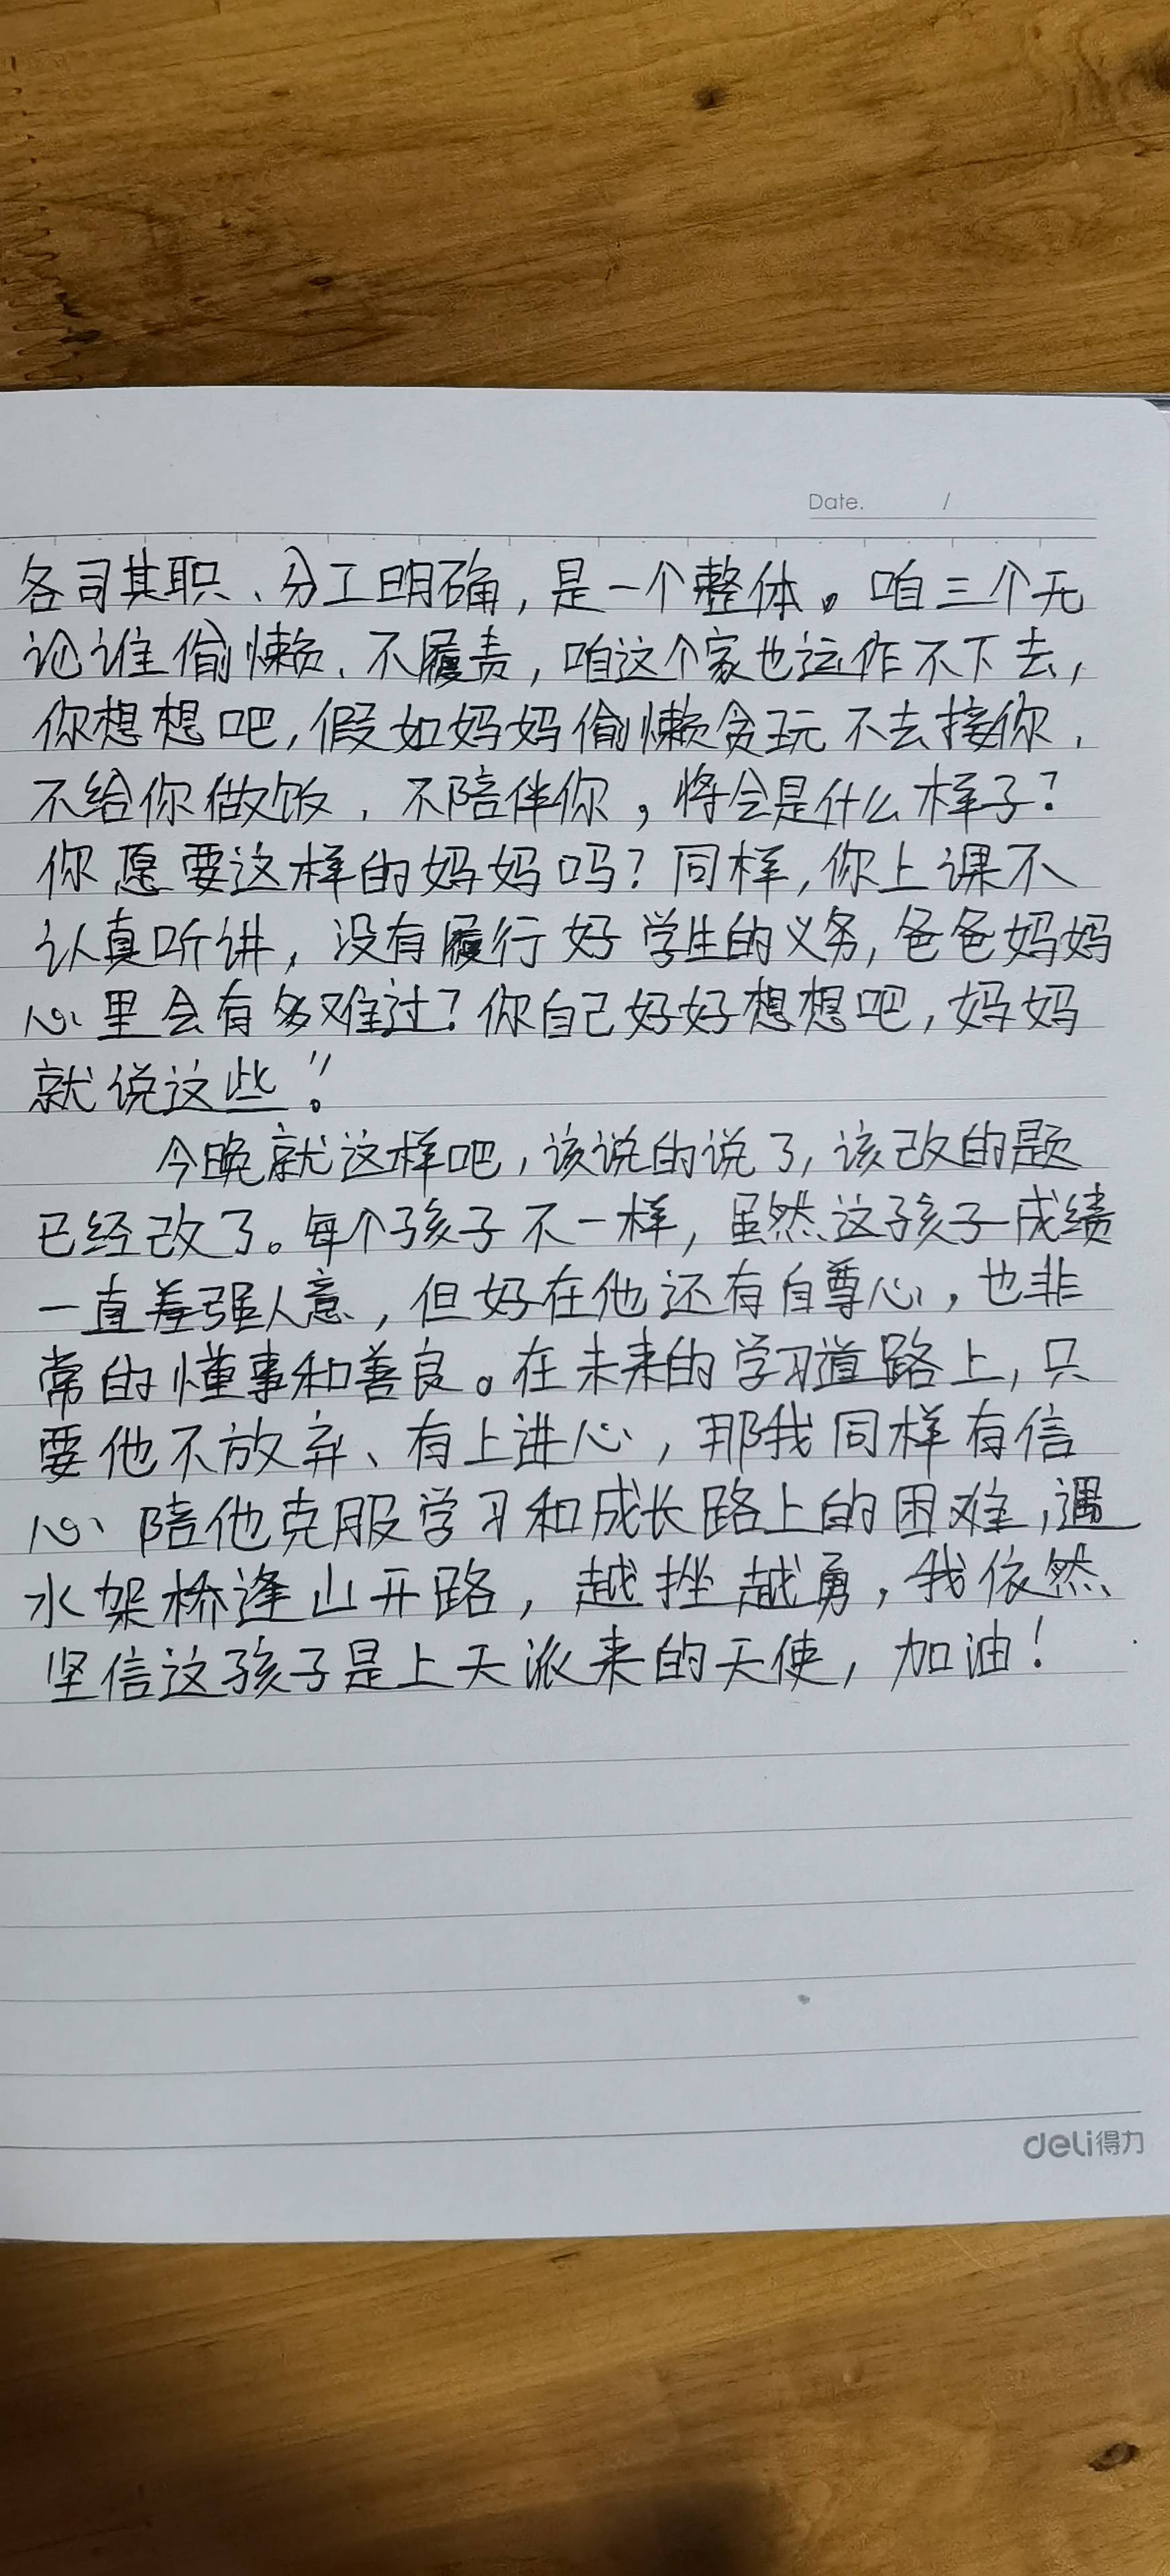 Date. /
各司其职、分工明确,是一个整体。咱三个无
论谁偷懒、不履责,咱这个家也运作不下去,
你想想吧,假如妈妈偷懒贪玩不去接你,
不给你做饭,不陪伴你,将会是什么样子?
你愿要这样的妈妈吗?同样,你上课不
认真听讲,没有履行好学生的义务,爸爸妈妈
心里会有多难过?你自己好好想想吧,妈妈
就说这些。”
今晚就这样吧,该说的说了,该改的题
已经改了。每个孩子不一样,虽然这孩子成绩
一直差强人意,但好在他还有自尊心,也非
常的懂事和善良。在未来的学习道路上,只
要他不放弃、有上进心,那我同样有信
心陪他克服学习和成长路上的困难,遇
水架桥逢山开路,越挫越勇,我依然
坚信这孩子是上天派来的天使,加油!
deli得力